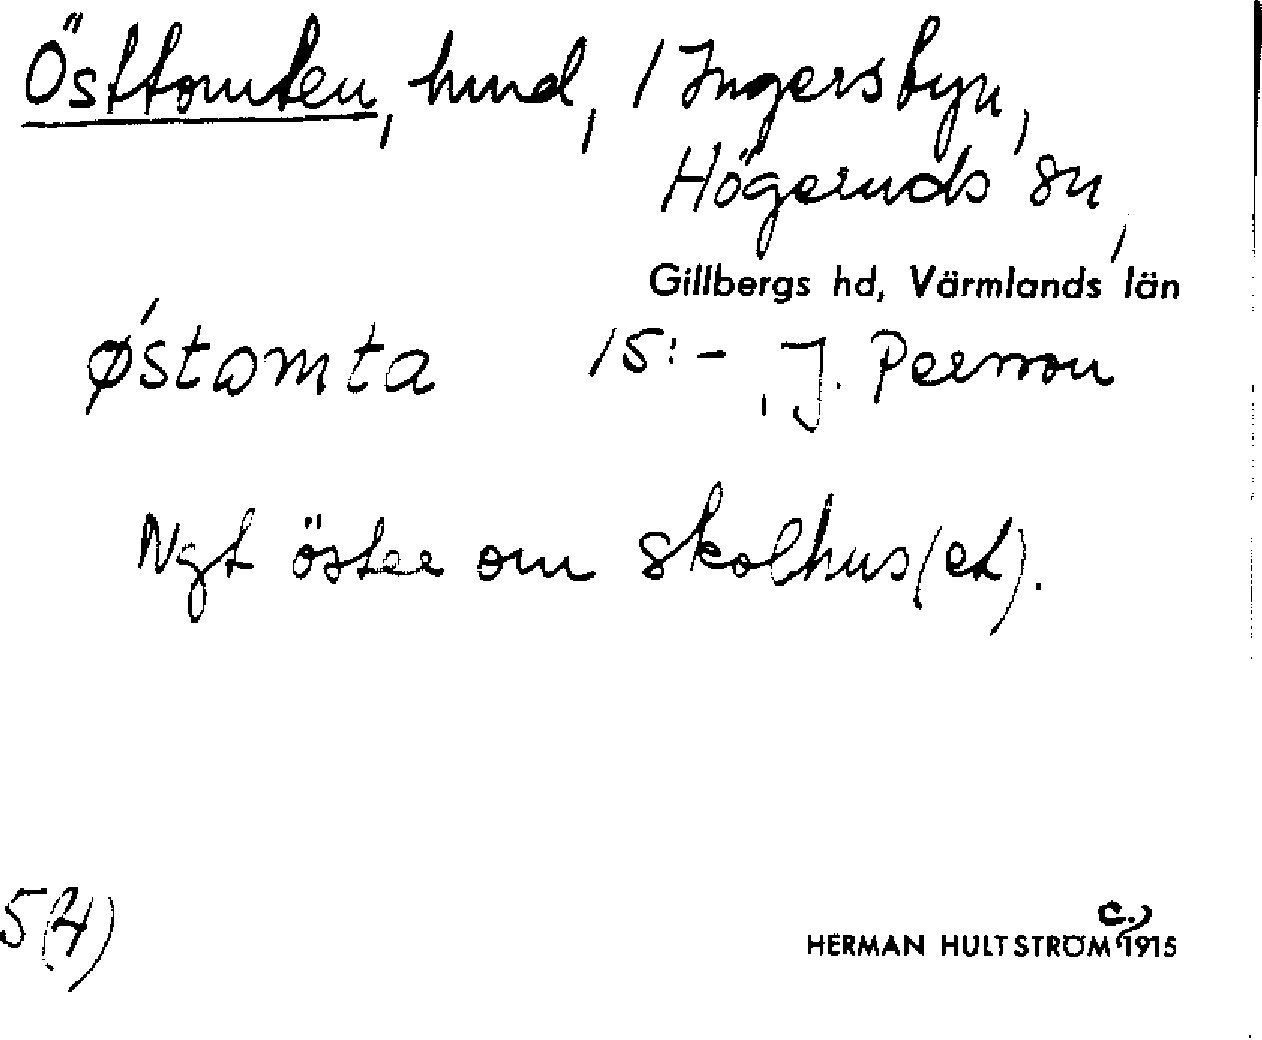 Östtomten, hmd, / Ingersbyn,
Högeruds sn,
Gillbergs hd, Värmlands län
østomta 15:-, J. Persson
Ngt öster om skolhus(et).
5(4)
c.
HERMAN HULTSTRÖM 1915